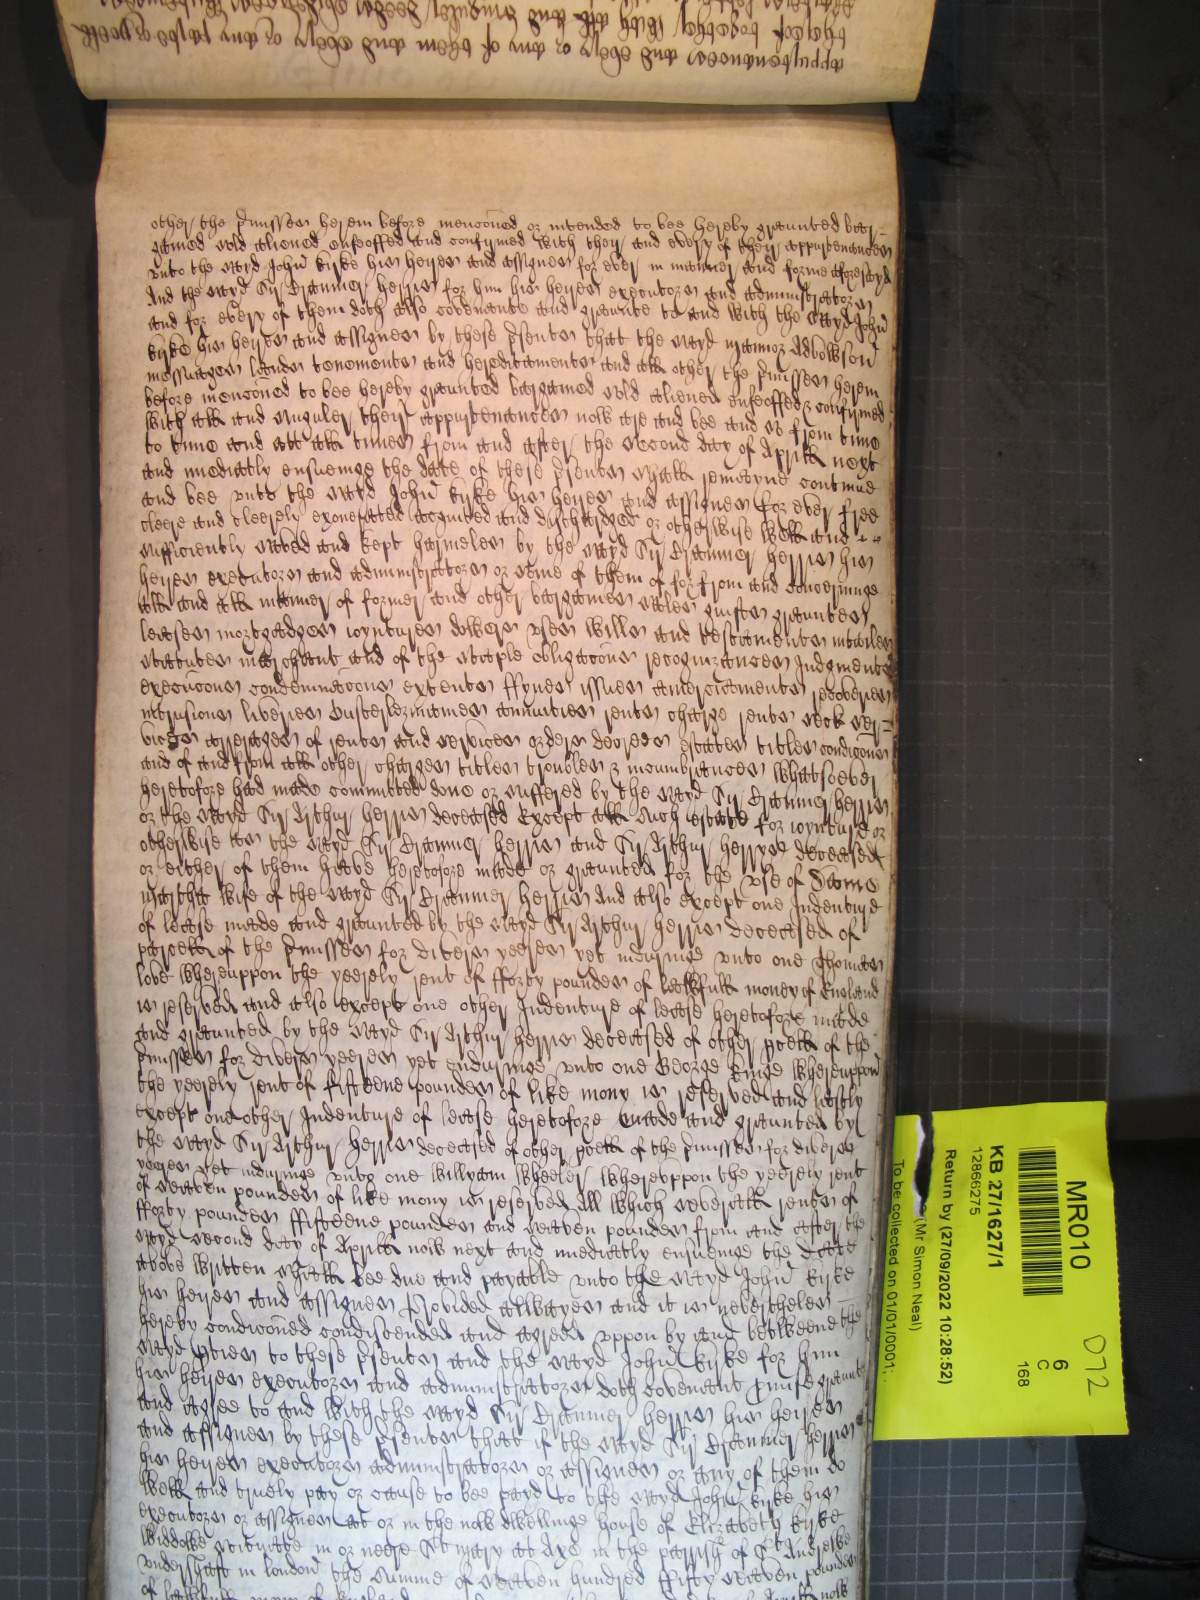 appurtenances and every or any of them and every or any parte or pcell
thereof together with all and singuler
other the pmisses herein before mencioned or intended to bee hereby graunted bar=
gained sold aliened enfeoffed and confirmed with their and every of their appurtenances
unto the sayd John Kirke his heires and assignes for ever in manner and forme aforesayd
And the sayd Sir Brammer Herris for him his heires executors and administrators
and for every of them doth also covenante and graunte to and with the sayd John
Kirke his heires and assignes by these psents that the sayd mannor Advowson
messuages landes tenements and hereditaments and all other the pmisses herein
before mencioned to bee hereby graunted bargained sold aliened enfeoffed & confirmed
with all and singuler their appurtenances now are and bee and so from time
to time and att all times from and after the second day of Aprill next
and imediatly ensueinge the date of these psents shall remayne continue
and bee unto the sayd John Kirke his heires and assignes for ever free
cleere and cleerely exonerated acquited and discharged or otherwise well and
sufficiently saved and kept harmeles by the sayd Sir Brammer Herris his
heires executors and administrators or some of them of for from and concerninge
all and all manner of former and other bargaines sales guifts grauntes
leases mortgadges ioyntures dowers uses wills and testaments intailes
statutes marchant and of the staple obligacions recognizances Judgments
execucions condemnacions extents ffynes issues amerciaments recoveries
intrusions liveries ousterlezmaines annuities rents charge rents seck ser=
vices arrerages of rents and services orders decrees estates titles condicions
and of and from all other charges titles troubles & incumbrances whatsoever
heretofore had made committed done or suffered by the sayd Sir Brammer Herris
or the sayd Sir Arthur Herris deceased Except all such estate for ioynture or
otherwise as the sayd Sir Brammer Herris and Sir Arthur Herrys deceased
or either of them have heretofore made or graunted for the use of Dame
Martha wife of the sayd Sir Brammer Herris And also except one Indenture
of lease made and graunted by the sayd Sir Arthur Herris deceased of
parcell of the pmisses for divers yeeres yet induringe unto one Thomas
love whereuppon the yeerely rent of fforty poundes of lawfull money of England
is reserved and also except one other Indenture of lease heretofore made
and graunted by the sayd Sir Arthur Herris deceased of other pcell of the
pmisses for divers yeeres yet enduringe unto one George Kinge whereuppon
the yeerely rent of fifteene poundes of like mony is reserved and lastly
except one other Indenture of lease heretofore made and graunted by
the sayd Sir Arthur Herris deceased of other pcell of the pmisses for divers
yeeres yet induringe unto one Willyam Wheeler whereuppon the yeerely rent
of seaven poundes of like mony is reserved All which severall rents of
fforty poundes ffifteene poundes and seaven poundes from and after the
sayd second day of Aprill now next and imediatly ensueinge the date
above written shall bee due and payable unto the sayd John Kirke
his heires and assignes Provided allwayes and it is neverthelesse
hereby condicioned condiscended and agreed uppon by and betweene the
sayd pties to these psents and the sayd John Kirke for him
his heires executors and administrators doth covenant pmise graunt
and agree to and with the sayd Sir Brammer Herris his heires
and assignes by these psents that if the sayd Sir Brammer Herris
his heires executors administrators or assignes or any of them do
well and truely pay or cause to bee payd to the sayd John Kirke his
executors or assignes at or in the now dwellinge house of Elizabeth Kirke
widdowe scituate in or neere St mary at Axe in the parrish of St Andrewe
undershaft in london the summe of seaven hundred fifty seaven poundes
of lawfull mony of England
MR010
6
C
168
072
KB 27/1627/1
12866275
Return by (27/09/2022 10:28:52)
(Mr Simon Neal)
To be collected on 01/01/0001;